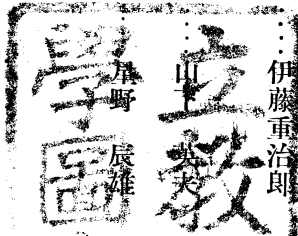 …伊藤重治郎
…山下 英夫
…星野 辰雄
立教
學圖